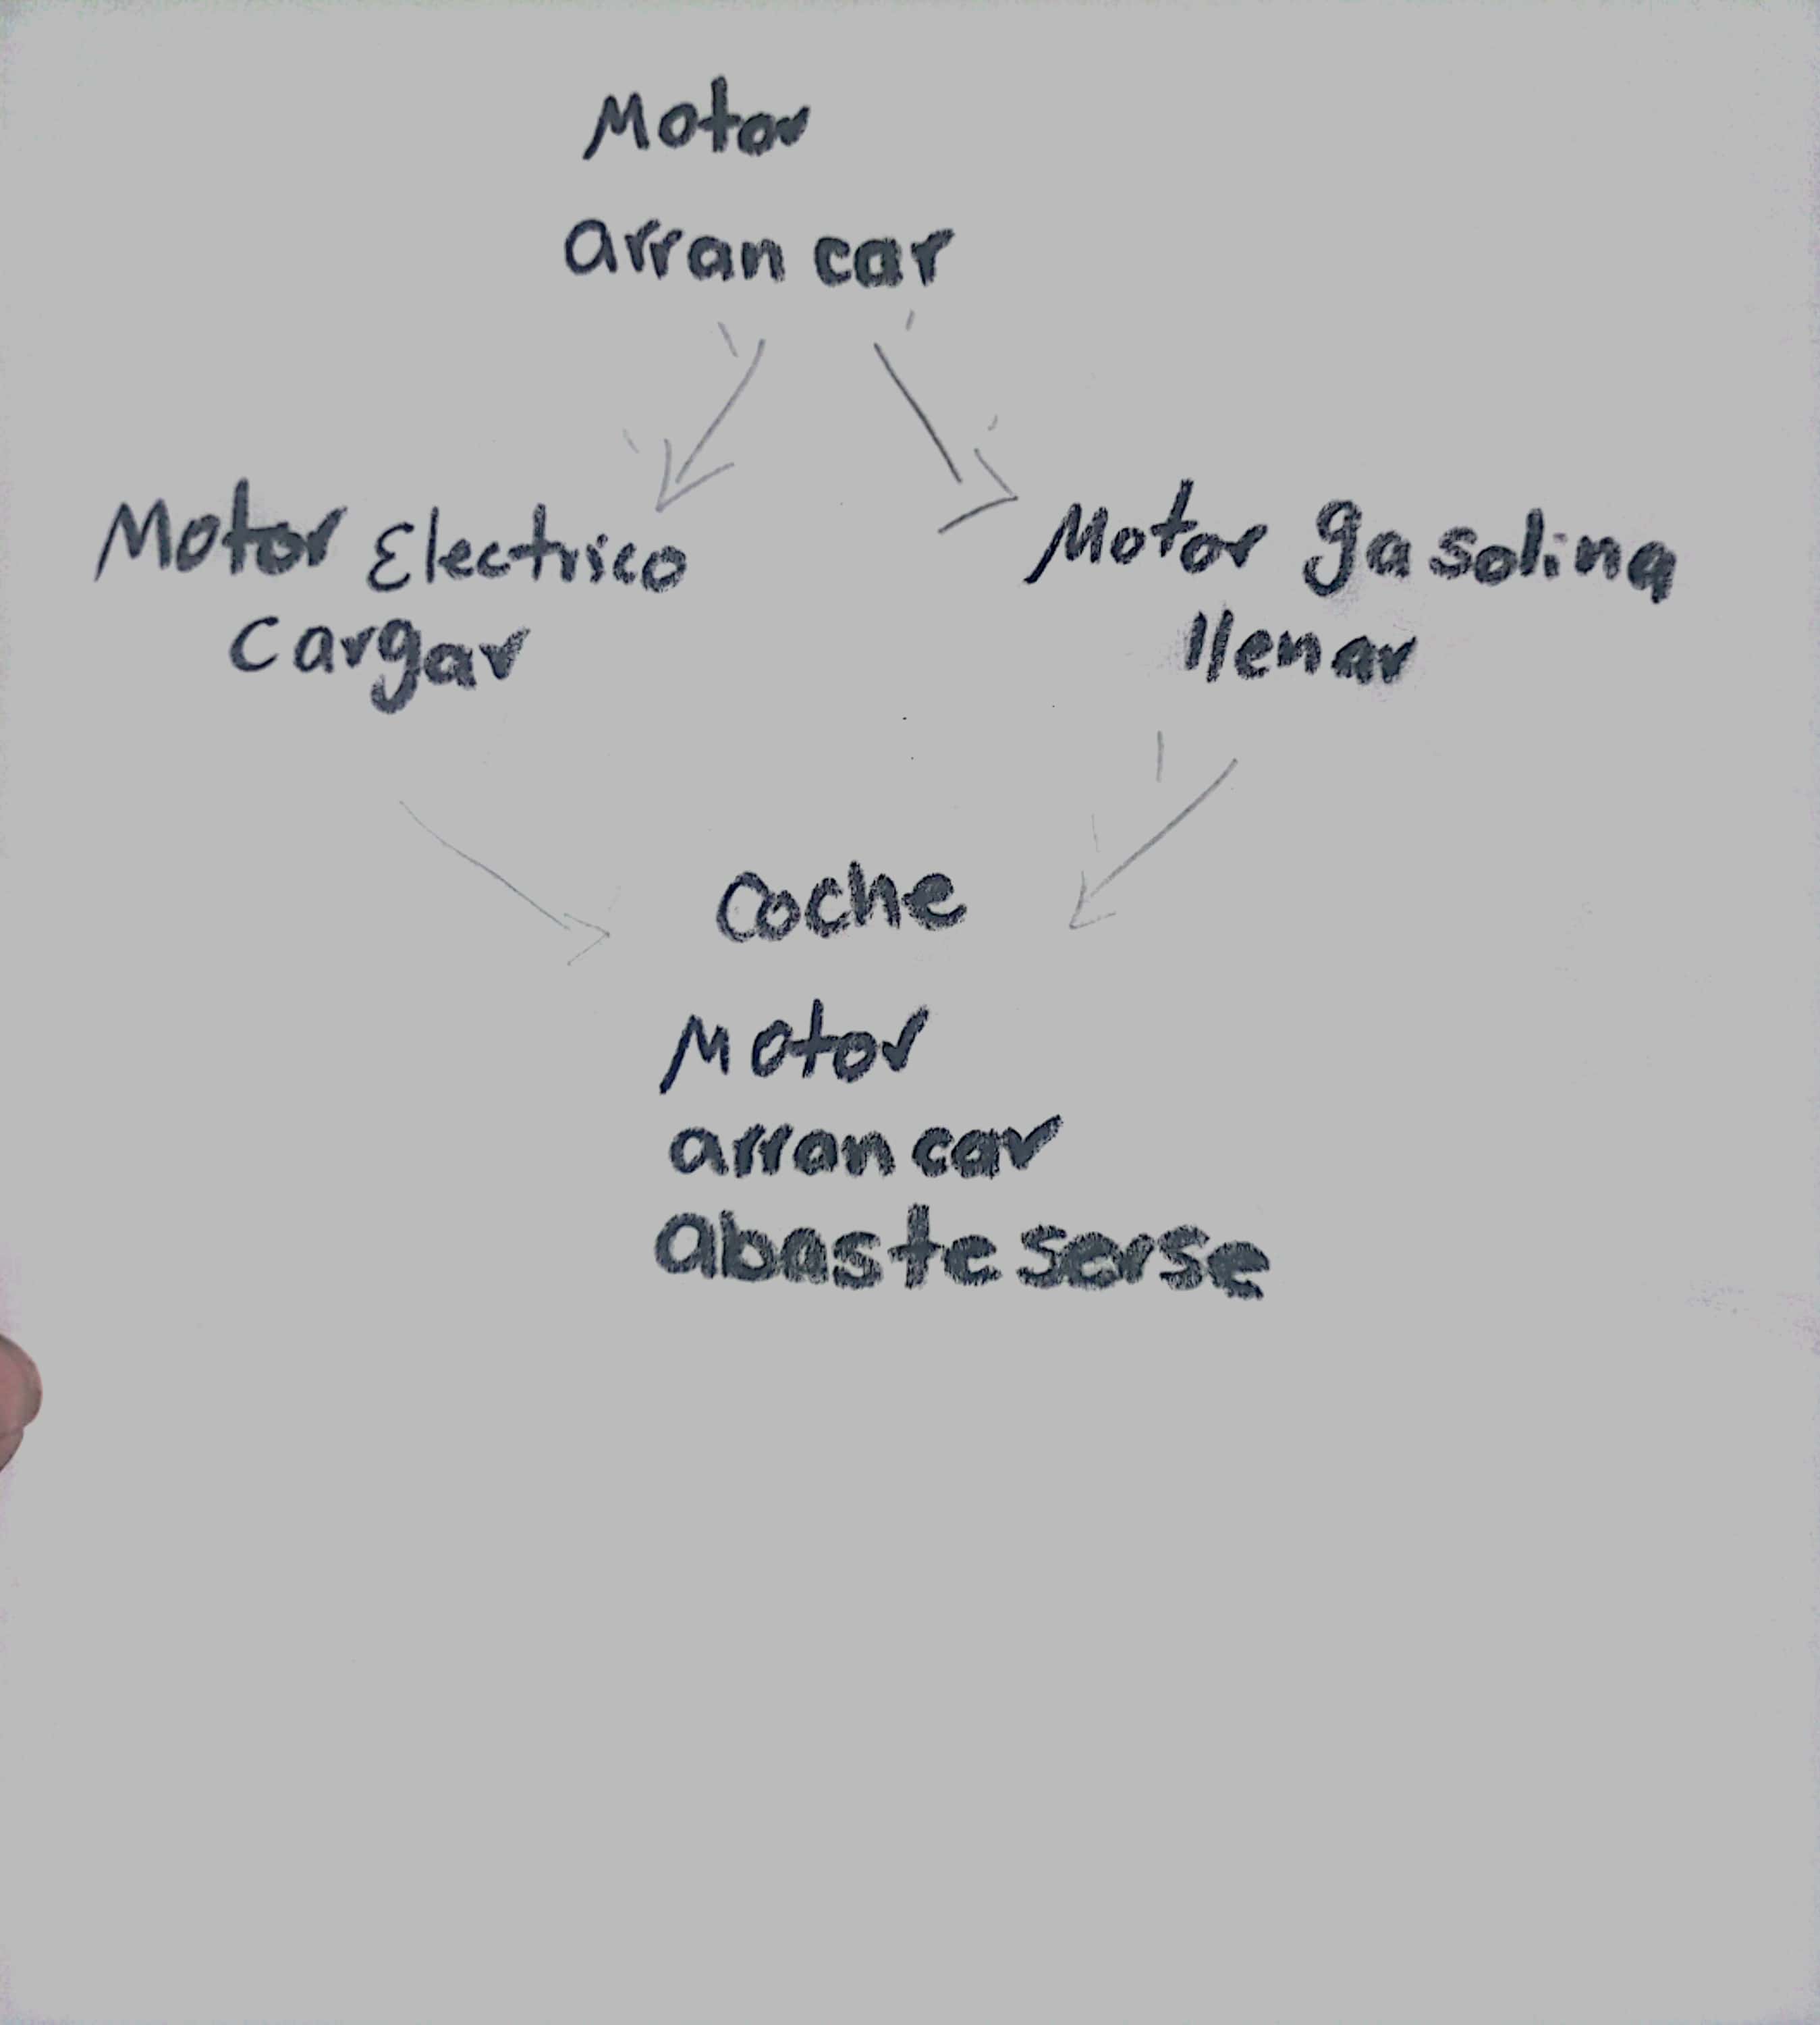 Motor
arrancar
Motor Electrico
Cargar
Motor gasolina
llenar
Coche
Motor
arrancar
abasteserse